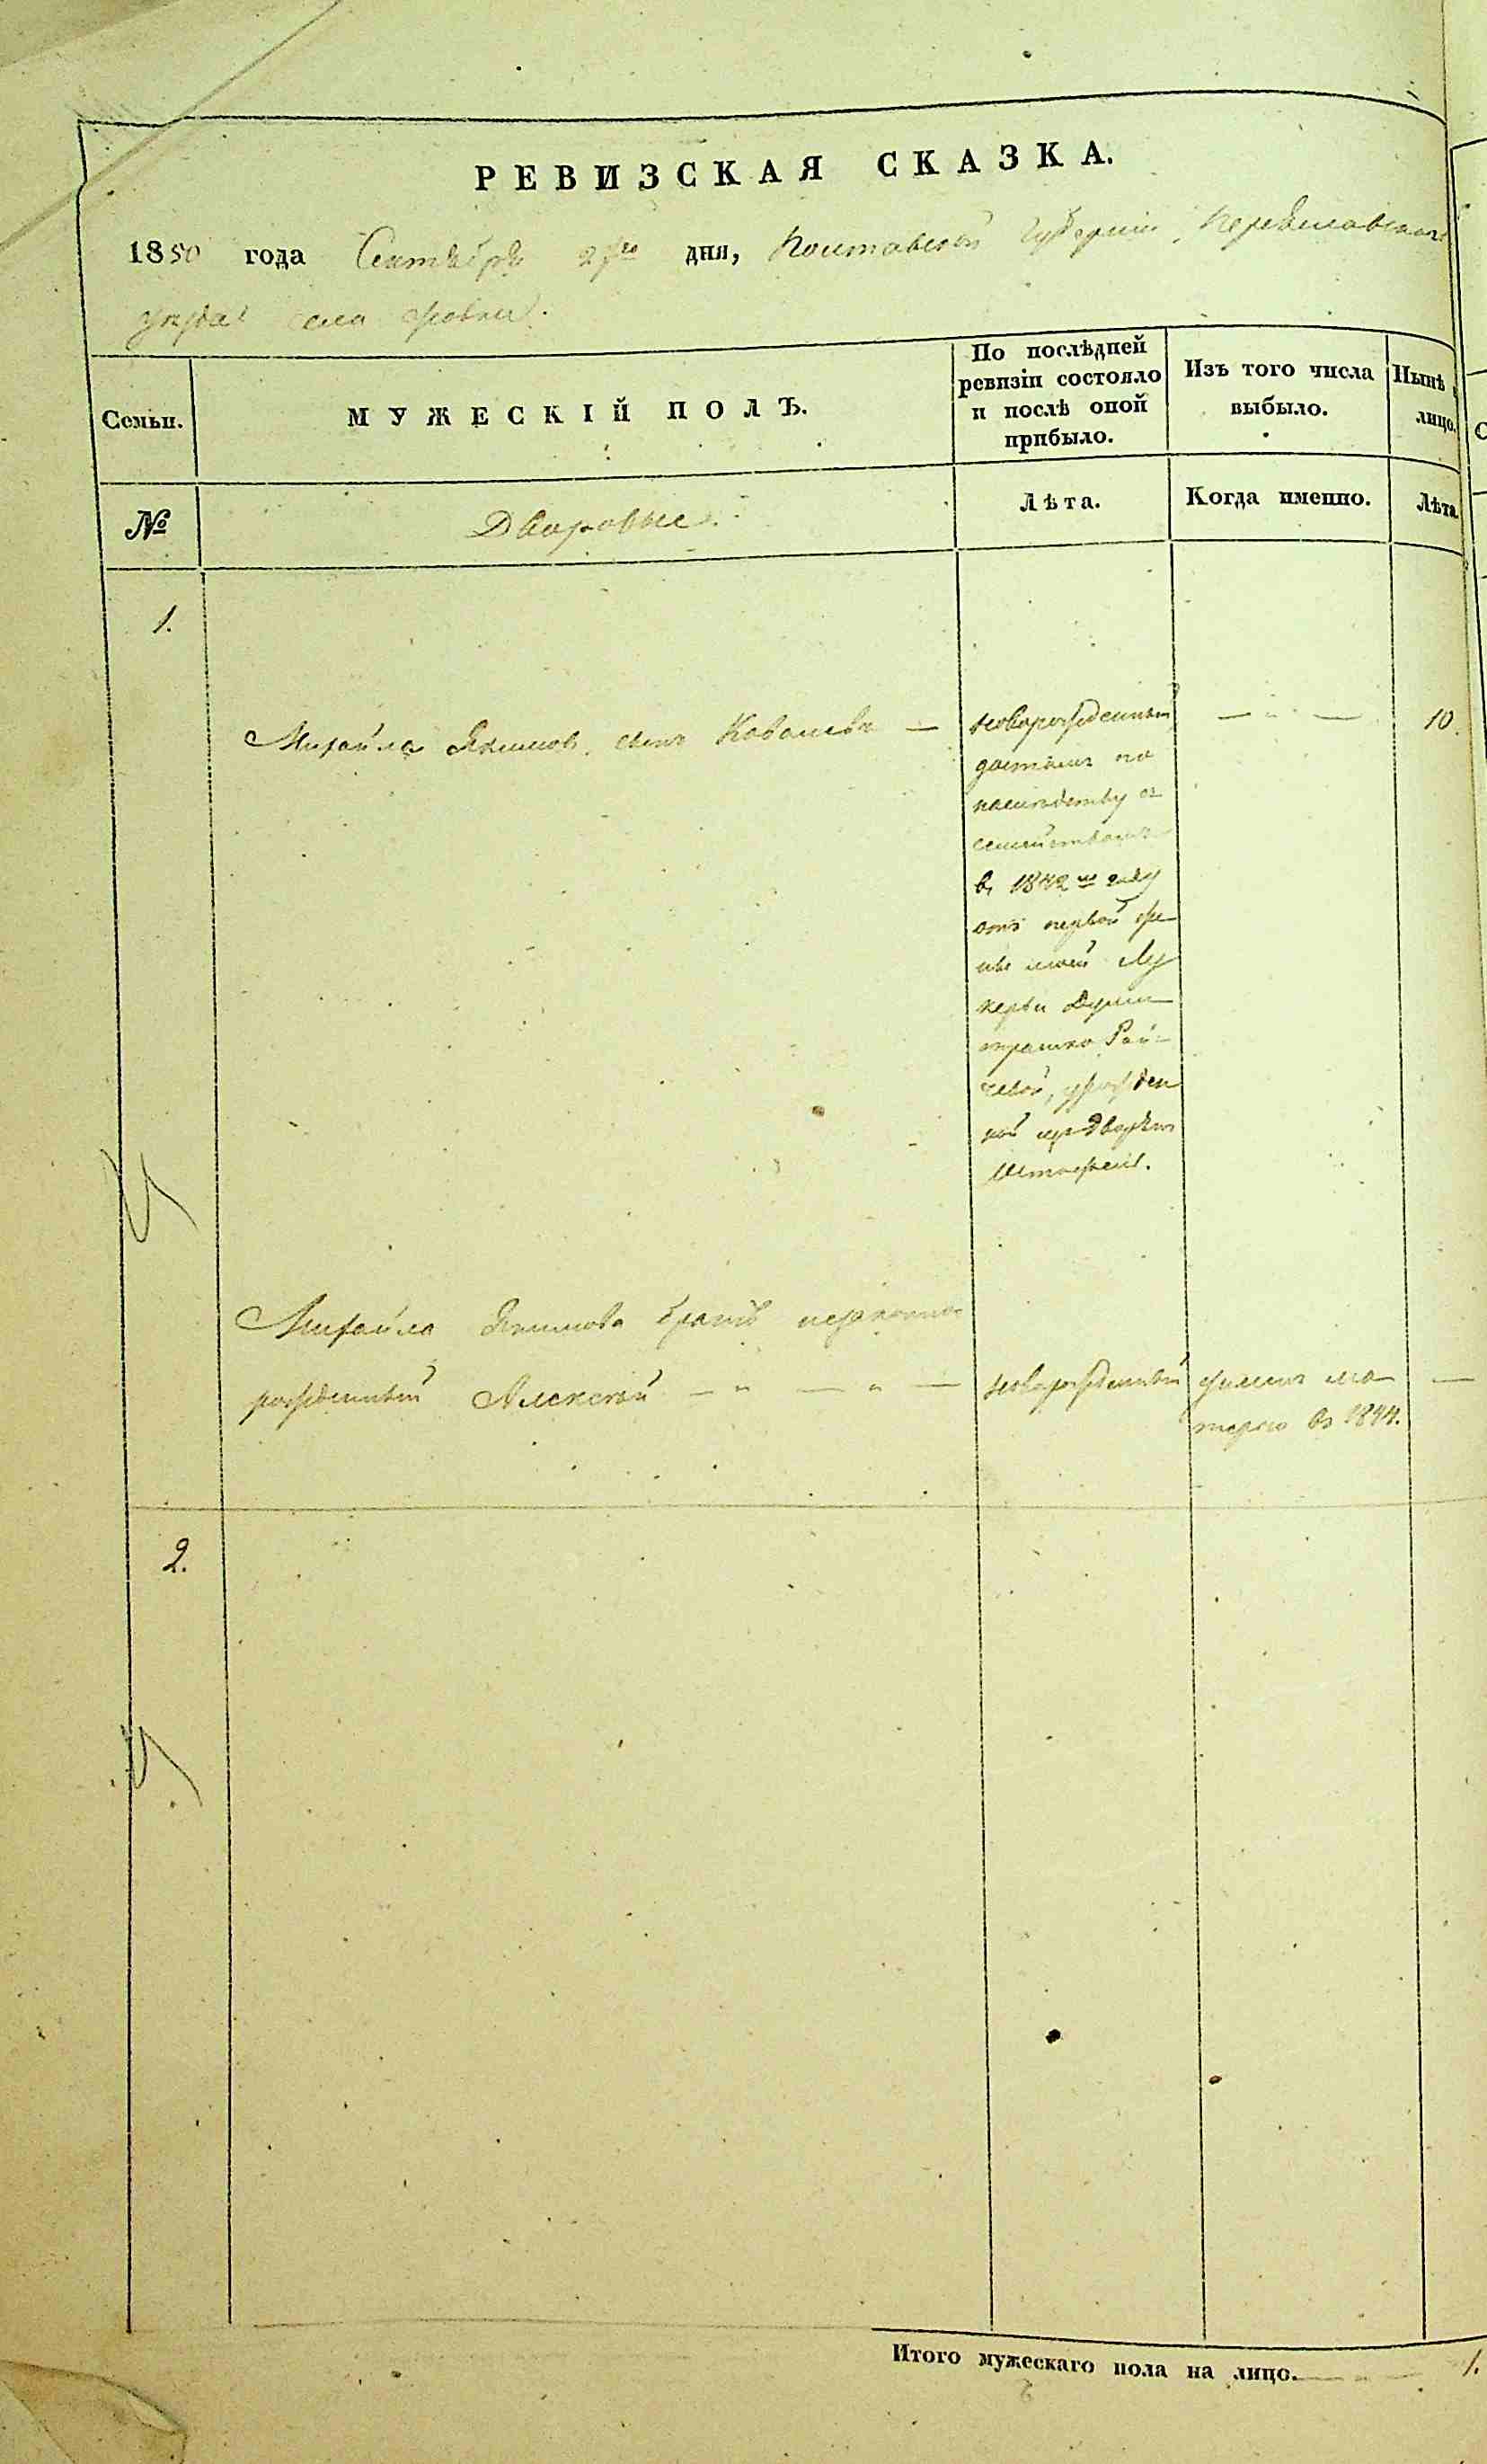 РЕВИЗСКАЯ СКАЗКА.
1850 года Сентября дня, Полтавской Губернии, Переяславского
уезда села
Семьи.
МУЖЕСКІЙ ПОЛЪ.
По послѣдней
ревизіи состояло
и послѣ оной
прибыло.
Изъ того числа
выбыло.
Нынѣ
лицо.
№
Дворовые.
Лѣта.
Когда именно.
Лѣта
1.
Михайла Якимов сынъ Ковалевъ — новорожденный — " — 10.
досталъ по
наслѣдству съ
семействомъ
въ 1842 году
отъ первой же-
ны моей Лу
керьи Думи
трашко Рай-
чевой, урожден
ной
Михайла Якимова братъ
рожденный Алексѣй — " — " — новорожденный —
въ 1844.
2.
Итого мужескаго пола на лицо. 1.